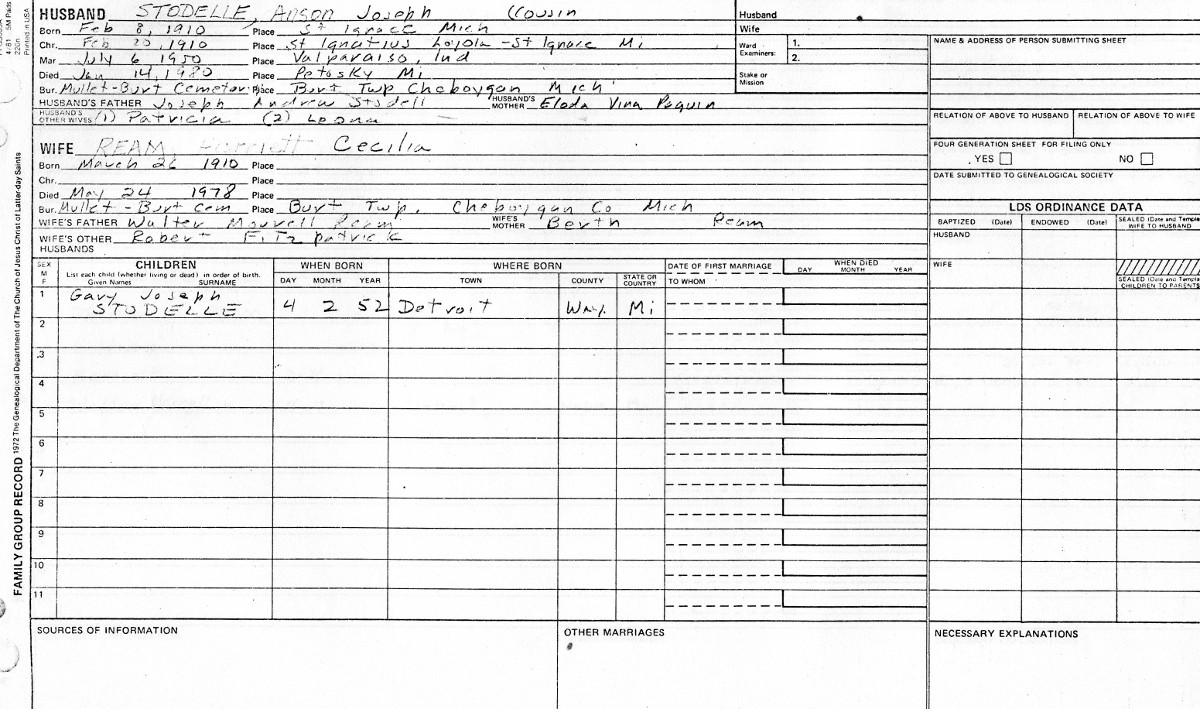 HUSBAND STODELLE, Anson Joseph Cousin
Born Feb 8, 1910 Place St Ignace Mich
Chr. Feb 20, 1910 Place St Ignatius Loyola - St Ignace Mi
Mar July 6 1950 Place Valparaiso, Ind
Died Jan 14, 1980 Place Petosky Mi
Bur. Mullet-Burt Cemetery Place Burt Twp Cheboygan Mich
HUSBAND'S FATHER Joseph Andrew Stodell HUSBAND'S MOTHER Eloda Vina Paquin
HUSBAND'S OTHER WIVES (1) Patricia (2) Leona
WIFE REAM, Harriett Cecilia
Born March 26 1910 Place
Chr. Place
Died May 24 1978 Place
Bur. Mullet-Burt Cem Place Burt Twp, Cheboygan Co Mich
WIFE'S FATHER Walter Ream WIFE'S MOTHER Berth Ream
WIFE'S OTHER HUSBANDS Robert Fitzpatrick
Husband
Wife
Ward Examiners: 1.
2.
Stake or Mission
NAME & ADDRESS OF PERSON SUBMITTING SHEET
RELATION OF ABOVE TO HUSBAND RELATION OF ABOVE TO WIFE
FOUR GENERATION SHEET FOR FILING ONLY
YES NO
DATE SUBMITTED TO GENEALOGICAL SOCIETY
LDS ORDINANCE DATA
BAPTIZED (Date) ENDOWED (Date) SEALED (Date and Temple) WIFE TO HUSBAND
HUSBAND
WIFE
SEALED (Date and Temple) CHILDREN TO PARENTS
SEX M F
CHILDREN
List each child (whether living or dead) in order of birth.
Given Names SURNAME
WHEN BORN
DAY MONTH YEAR
WHERE BORN
TOWN COUNTY STATE OR COUNTRY
DATE OF FIRST MARRIAGE
TO WHOM
WHEN DIED
DAY MONTH YEAR
1 Gary Joseph
STODELLE 4 2 52 Detroit Way. Mi
2
3
4
5
6
7
8
9
10
11
SOURCES OF INFORMATION
OTHER MARRIAGES
NECESSARY EXPLANATIONS
FAMILY GROUP RECORD 1972 The Genealogical Department of The Church of Jesus Christ of Latter-day Saints
4/81 5M Pads
220n
Printed in USA